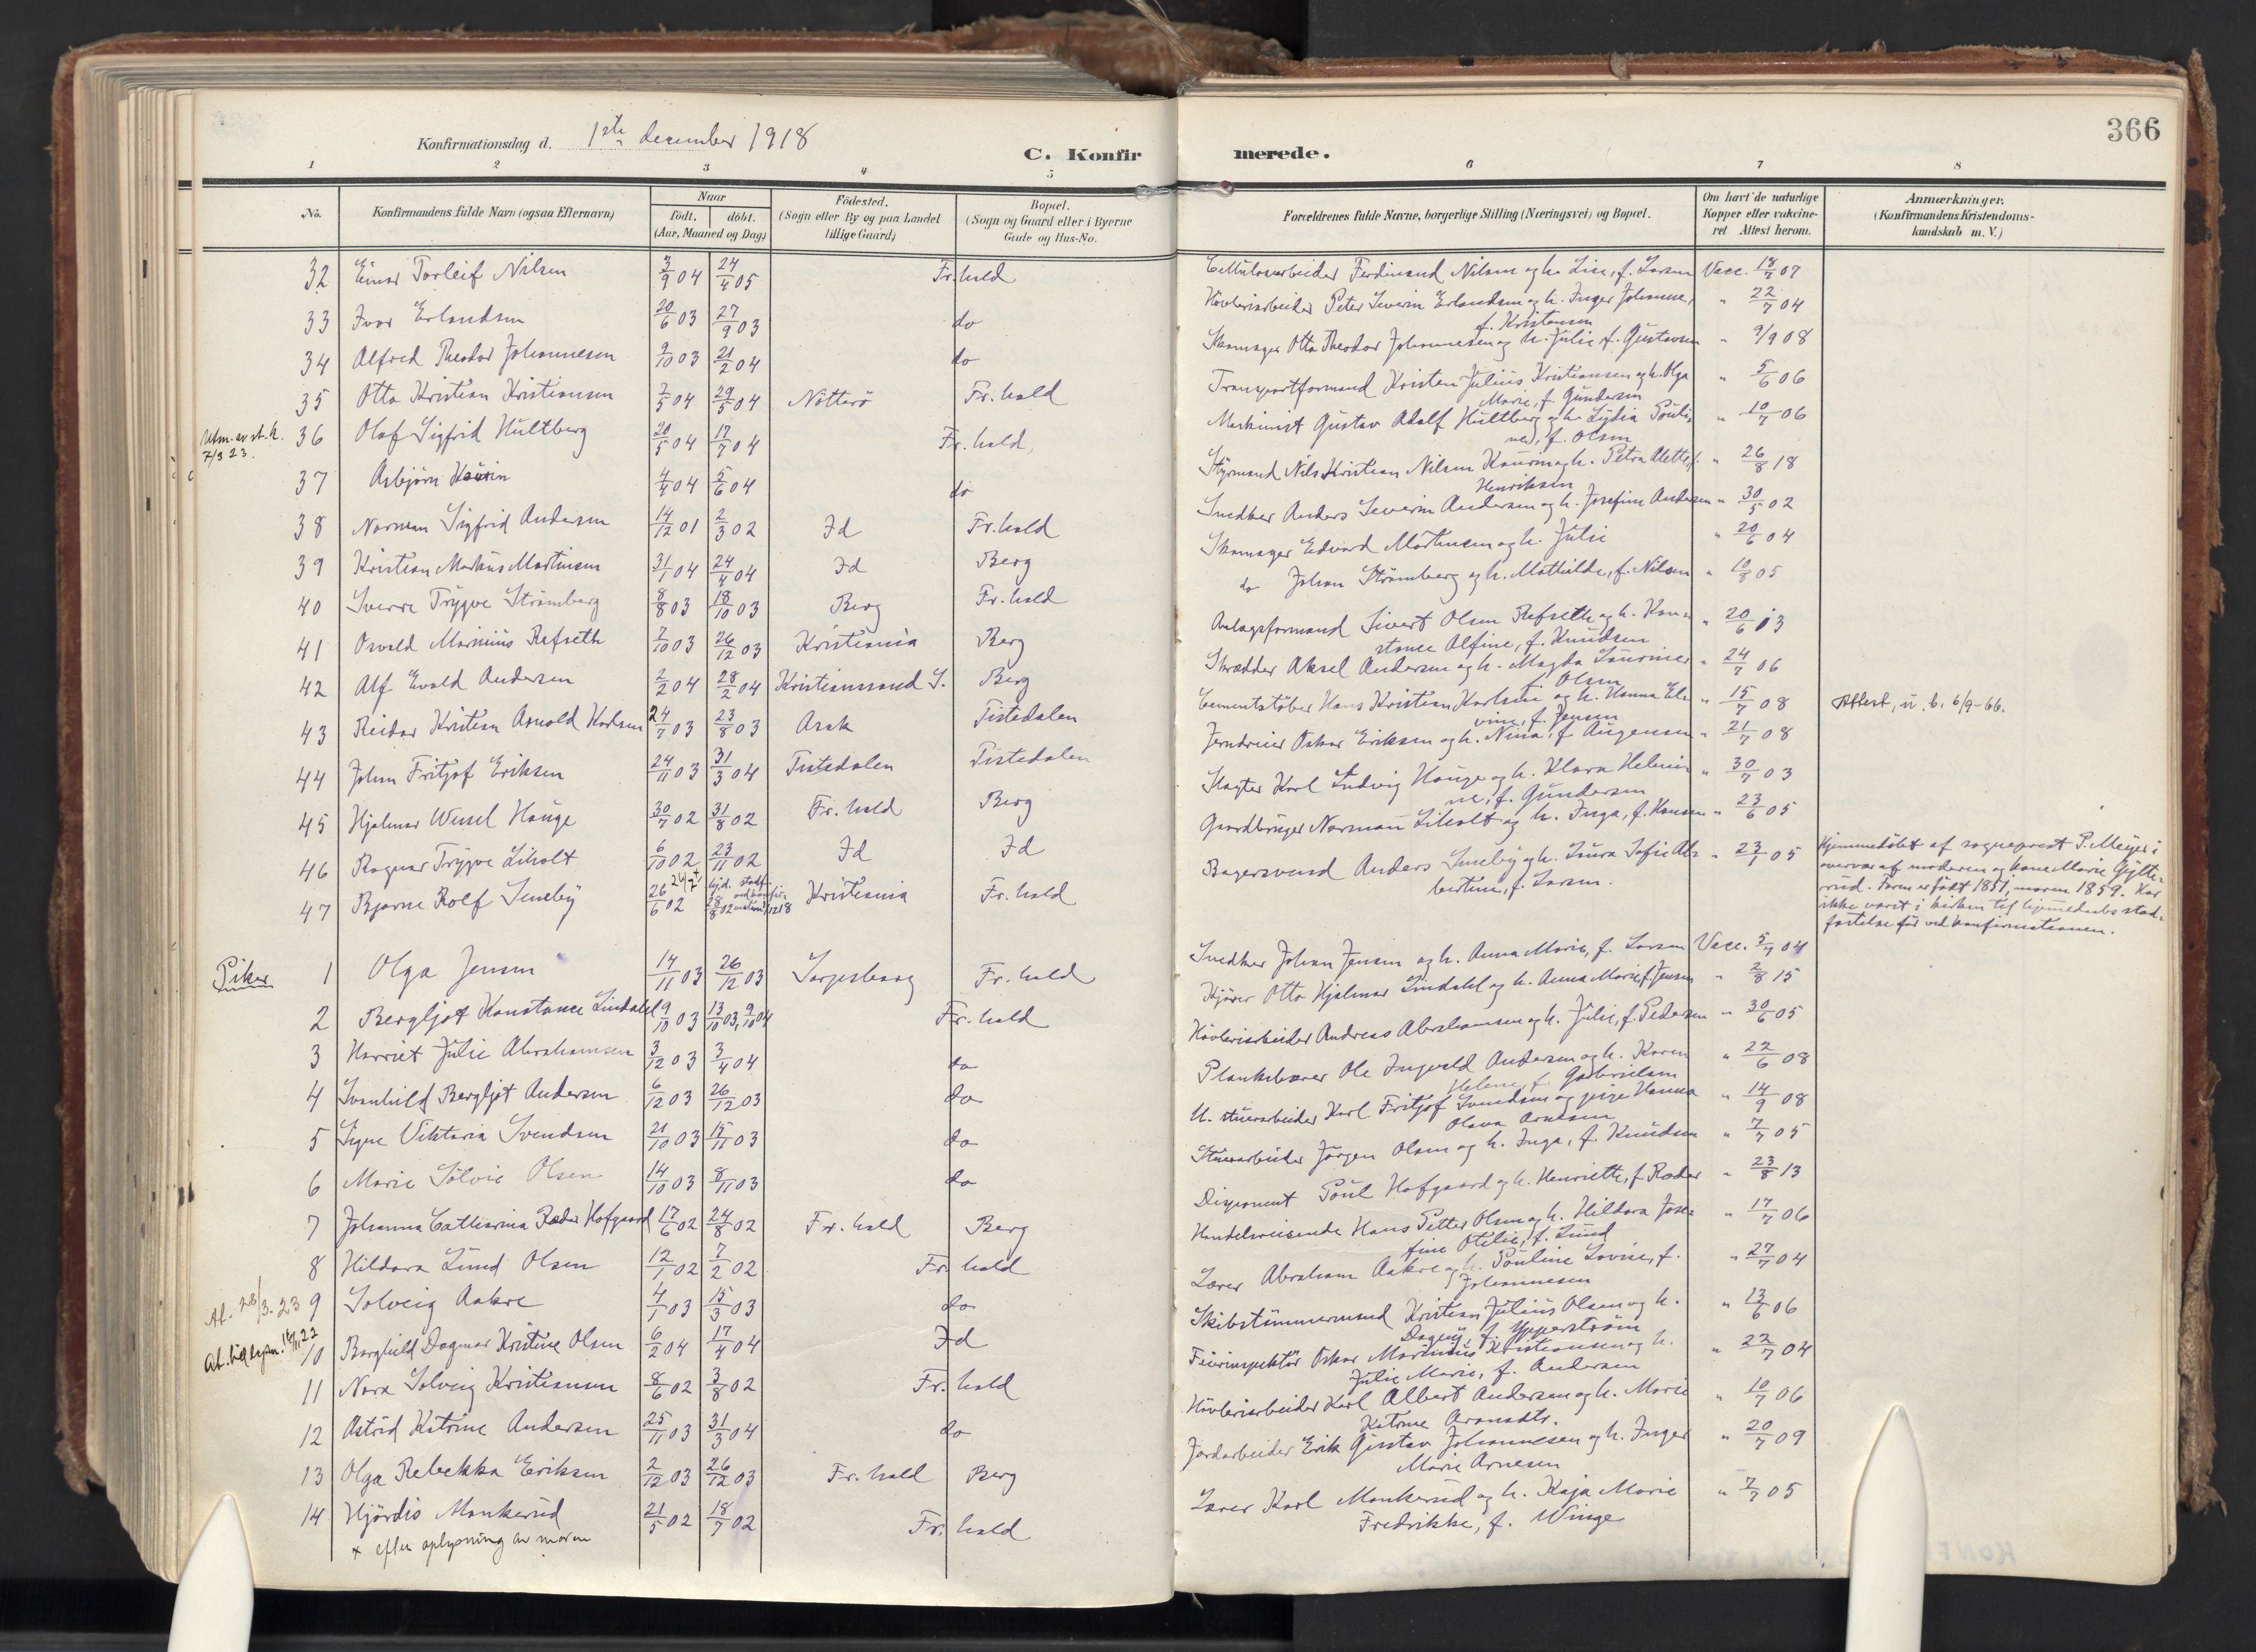 366
Konfirmationsdag d. 1ste december 1918
C. Konfirmerede.
1 2 3 4 5 6 7 8
No. Konfirmandens fulde Navn (ogsaa Efternavn) Naar födt. döbt. (Aar, Maaned og Dag) Födested. (Sogn eller By og paa Landet tillige Gaard) Bopæl. (Sogn og Gaard eller i Byerne Gade og Hus-No. Forældrenes fulde Navne, borgerlige Stilling (Næringsvei) og Bopæl. Om havt de naturlige Kopper eller vaccineret Attest herom. Anmærkninger. (Konfirmandens Kristendomskundskab m. V.)
32 Einar Torleif Nilsen 3/9 04 24/4 05 Fr.hald Cellulosearbeider Ferdinand Nilsen og h. Lise, f. Larsen Vacc. 18/7 07
33 Ivar Erlandsen 20/6 03 27/9 03 do Høvleriarbeider Peter Severin Erlandsen og h. Inger Johanne, f. Kristensen " 22/7 04
34 Alfred Theodor Johannesen 9/10 03 21/2 04 do Skomager Otto Theodor Johannesen og h. Julie, f. Gustavsen " 9/9 08
35 Otto Kristian Kristiansen 7/5 04 29/5 04 Nøtterö Fr.hald Transportformand Kristen Julius Kristiansen og h. Olga Marie, f. Gundersen " 5/6 06
Utm. av st.k. 7/3 23.
36 Olaf Sigfrid Hultberg 20/5 04 17/7 04 Fr.hald, Maskinist Gustav Adolf Hultberg og h. Lydia Pouline, f. Olsen " 10/7 06
37 Asbjørn Kaurin 4/4 04 5/6 04 do Styrmand Nils Kristian Nilsen Kaurin og h. Petra Alette f. Henriksen " 26/8 18
38 Norman Sigfrid Andersen 14/12 01 2/3 02 Id Fr.hald Snedker Anders Severin Andersen og h. Josefine Andersen " 30/5 02
39 Kristian Markus Martinsen 31/1 04 24/4 04 Id Berg Skomager Edvard Martinsen og h. Julie " 20/6 04
40 Sverre Trygve Strömberg 8/8 03 18/10 03 Berg Fr.hald do Johan Strömberg og h. Mathilde, f. Nilsen " 10/8 05
41 Osvald Marinius Refseth 7/10 03 26/12 03 Kristiania Berg Anlægsformand Sivert Olsen Refseth og h. Konstance Alfine, f. Knudsen " 20/6 13
42 Alf Evald Andersen 2/2 04 28/2 04 Kristianssand S. Berg Skrædder Aksel Andersen og h. Magda f. Olsen " 24/7 06
43 Reidar Kristian Arnold Karlsen 24/7 03 23/8 03 Asak Tistedalen Cementstøber Hans Kristian Karlsen og h. Hanna Elvine, f. Jensen " 15/7 08 Attest, u. b. 6/9-66.
44 Johan Fritjof Eriksen 24/11 03 31/3 04 Tistedalen Tistedalen Jerndreier Oskar Eriksen og h. Nina, f. Augensen " 21/7 08
45 Hjalmar Wessel Hauge 30/7 02 31/8 02 Fr.hald Berg Slagter Karl Ludvig Hauge og h. Klara Helmine, f. Gundersen " 30/7 03
46 Ragnar Trygve Liholt 6/10 02 23/11 02 Id Id Gaardbruger Norman Liholt og h. Inga, f. Hansen " 23/6 05
47 Bjarne Rolf Smeby 26/6 02 26/7 + 28/8 02 Kristiania Fr.hald Bagersvend Anders Smeby og h. Laura Sofie Albertine, f. Larsen. " 23/1 05
Hjemmedøbt af sogneprest P. Meyer i
overvær af moderen og kone Marie Gytterud. Faren er født 1857, moren 1859. Har
ikke været i kirken til hjemmedaabs stadfæstelse før ved konfirmationen.
Piker
1 Olga Jensen 14/11 03 26/12 03 Sarpsborg Fr.hald Snedker Johan Jensen og h. Anna Marie, f. Larsen Vacc. 5/7 04
2 Bergljot Konstance Lindahl 9/10 03 13/10 03, 9/10 04 Fr.hald Kjører Otto Hjalmar Lindahl og h. Anna Marie, f. Jensen " 2/8 15
3 Harriet Julie Abrahamsen 3/12 03 3/4 04 do Høvleriarbeider Andreas Abrahamsen og h. Julie, f. Pedersen " 30/6 05
4 Svanhild Bergljot Andersen 6/12 03 26/12 03 do Plankebærer Ole Ingvald Andersen og h. Karen Helene, f. Gabrielsen " 22/6 08
5 Signe Viktoria Svendsen 21/10 03 15/11 03 do U. stuearbeider Karl Fritjof Svendsen og pige Hanna Olava Arntsen " 14/9 08
6 Marie Sölvie Olsen 14/10 03 8/11 03 do Stuearbeider Jørgen Olsen og h. Inga, f. Knudsen " 7/7 05
7 Johanna Catharina Roeder Hofgaard 17/6 02 24/8 02 Fr.hald Berg Disponent Poul Hofgaard og h. Henriette, f. Roeder " 23/8 13
8 Hildara Lund Olsen 12/1 02 7/2 02 Fr.hald Handelsreisende Hans Petter Olsen og h. Hildara Josefine Otilie, f. Lund " 17/7 06
At. 28/3-23
9 Solveig Aakre 4/1 03 15/3 03 do Lærer Abraham Aakre og h. Pouline Lovise, f. Johannesen " 27/7 04
10 Borghild Dagmar Kristine Olsen 6/2 04 17/4 04 Id Skibstømmermand Kristian Julius Olsen og h. Dagny, f. Ypperström " 13/6 06
11 Nora Solveig Kristiansen 8/6 02 3/8 02 Fr.hald Feierinspektör Oskar Marinius Kristiansen og h. Julie Marie, f. Andersen " 22/7 04
12 Astrid Katrine Andersen 25/11 03 31/3 04 do Høvleriarbeider Karl Albert Andersen og h. Marie Katrine Aronsdtr. " 10/7 06
13 Olga Rebekka Eriksen 2/12 03 26/12 03 Fr.hald Berg Jordarbeider Erik Gustav Johannesen og h. Inger Marie Arnesen " 20/7 09
14 Hjördis Monkerud 21/5 02 18/7 02 Fr.hald Lærer Karl Monkerud og h. Kaja Marie Fredrikke, f. Winge " 7/7 05
+ efter oplysning av moren